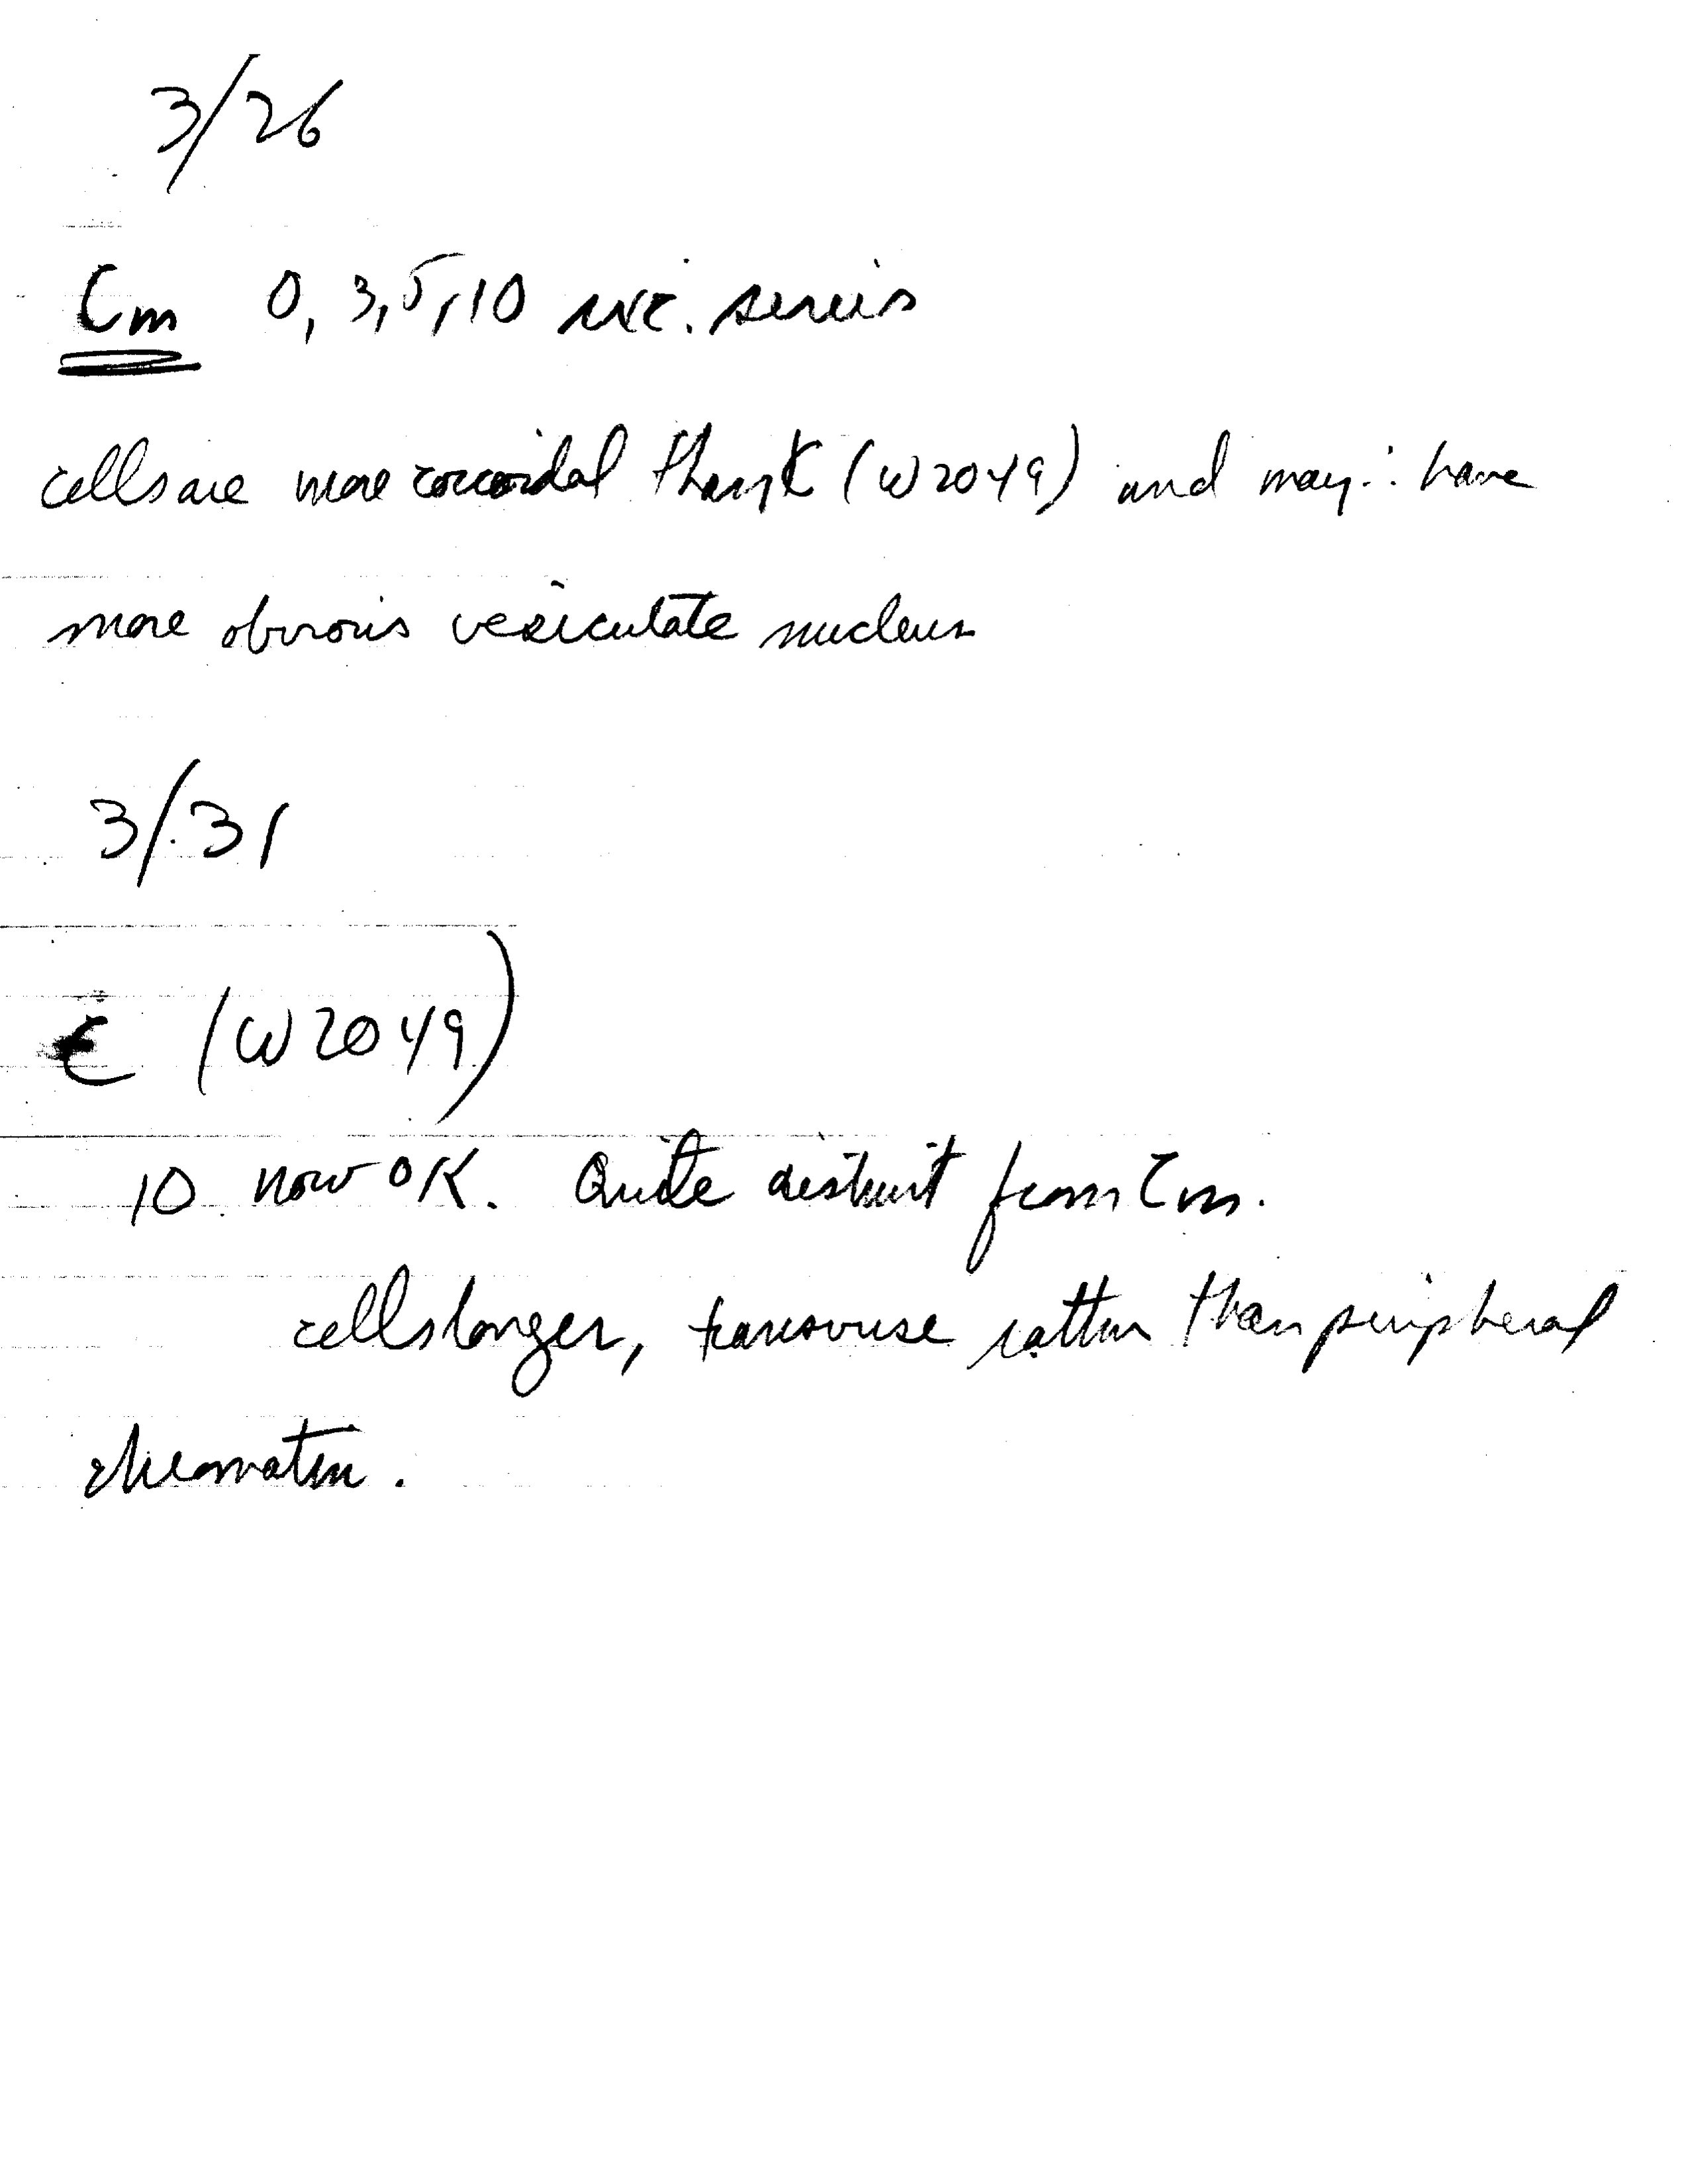 3/26
Cm 0, 3, 5, 10 series
cells are more coccoidal than K (W2049) and may ∴ have
more obvious vesiculate nucleus
3/31
(W2049)
10 now OK. Quite distinct from Cm.
cells longer, transverse rather than peripheral
chromatin.